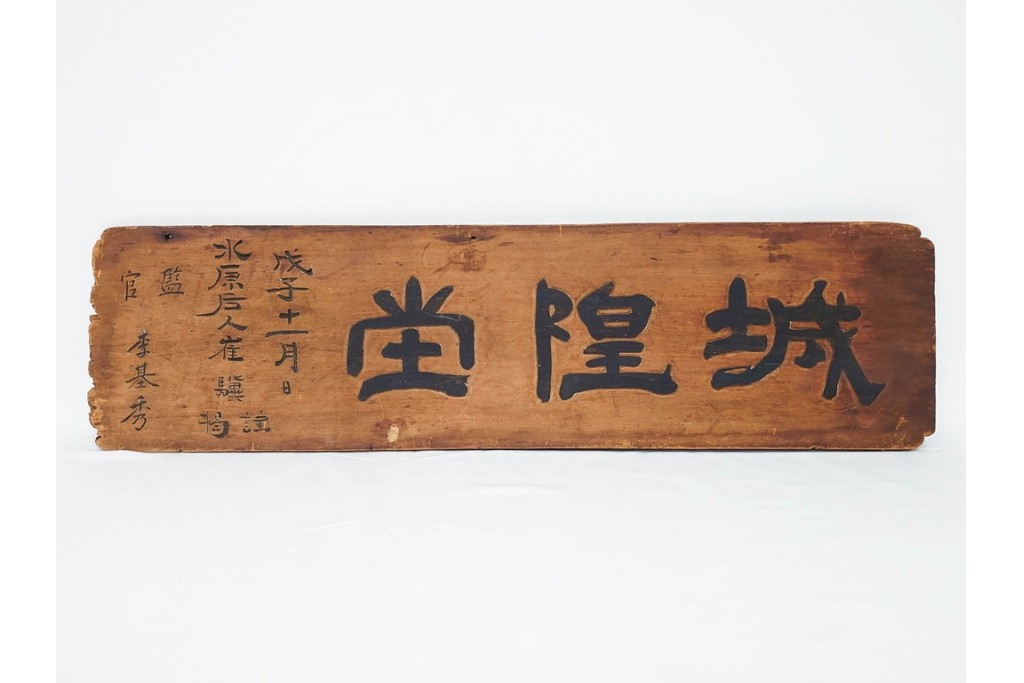 城隍坣
戊子十一月日
水原后人崔驥
監官
李基秀